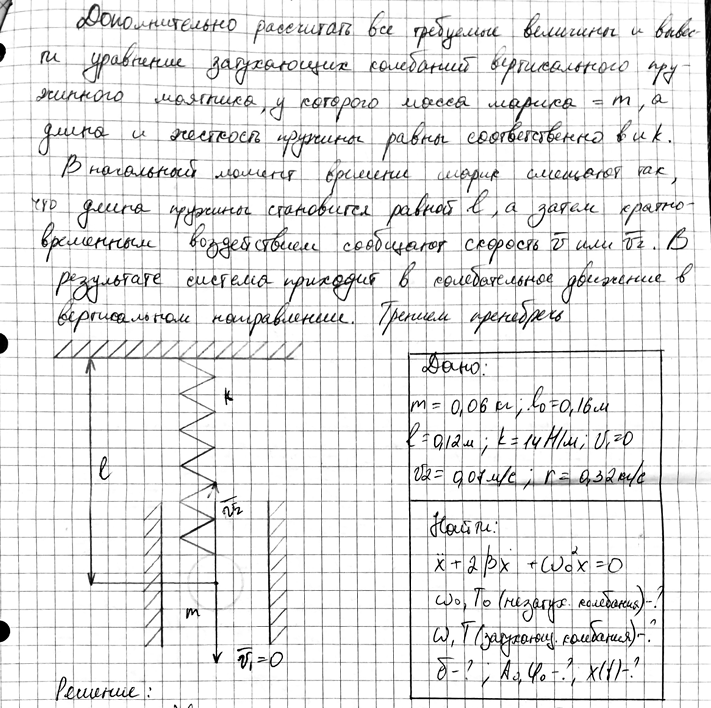 Дополнительно рассчитать все требуемые величины и вывес-
ти уравнение затухающих колебаний вертикального пру-
жинного маятника, у которого масса шарика = m, а
длина и жесткость пружины равны соответственно l и k.
В начальный момент времени шарик смещают так,
что длина пружины становится равной l, а затем кратко-
временным воздействием сообщают скорость v̅ или v̅₂. В
результате система приходит в колебательное движение в
вертикальном направлении. Трением пренебречь
k
l
v̅₂
m
v̅₁=0
Дано:
m = 0,06 кг; l₀=0,16м
l=0,12м; k=14Н/м; v₁=0
v₂= 0,01м/с; r=0,32кг/с
Найти:
ẍ+2βẋ+ω₀²x=0
ω₀, T₀ (незатух. колебания)-?
ω, T (затухающ. колебания)-?
δ-?; A₀, φ₀-?; x(t)-?
Решение: